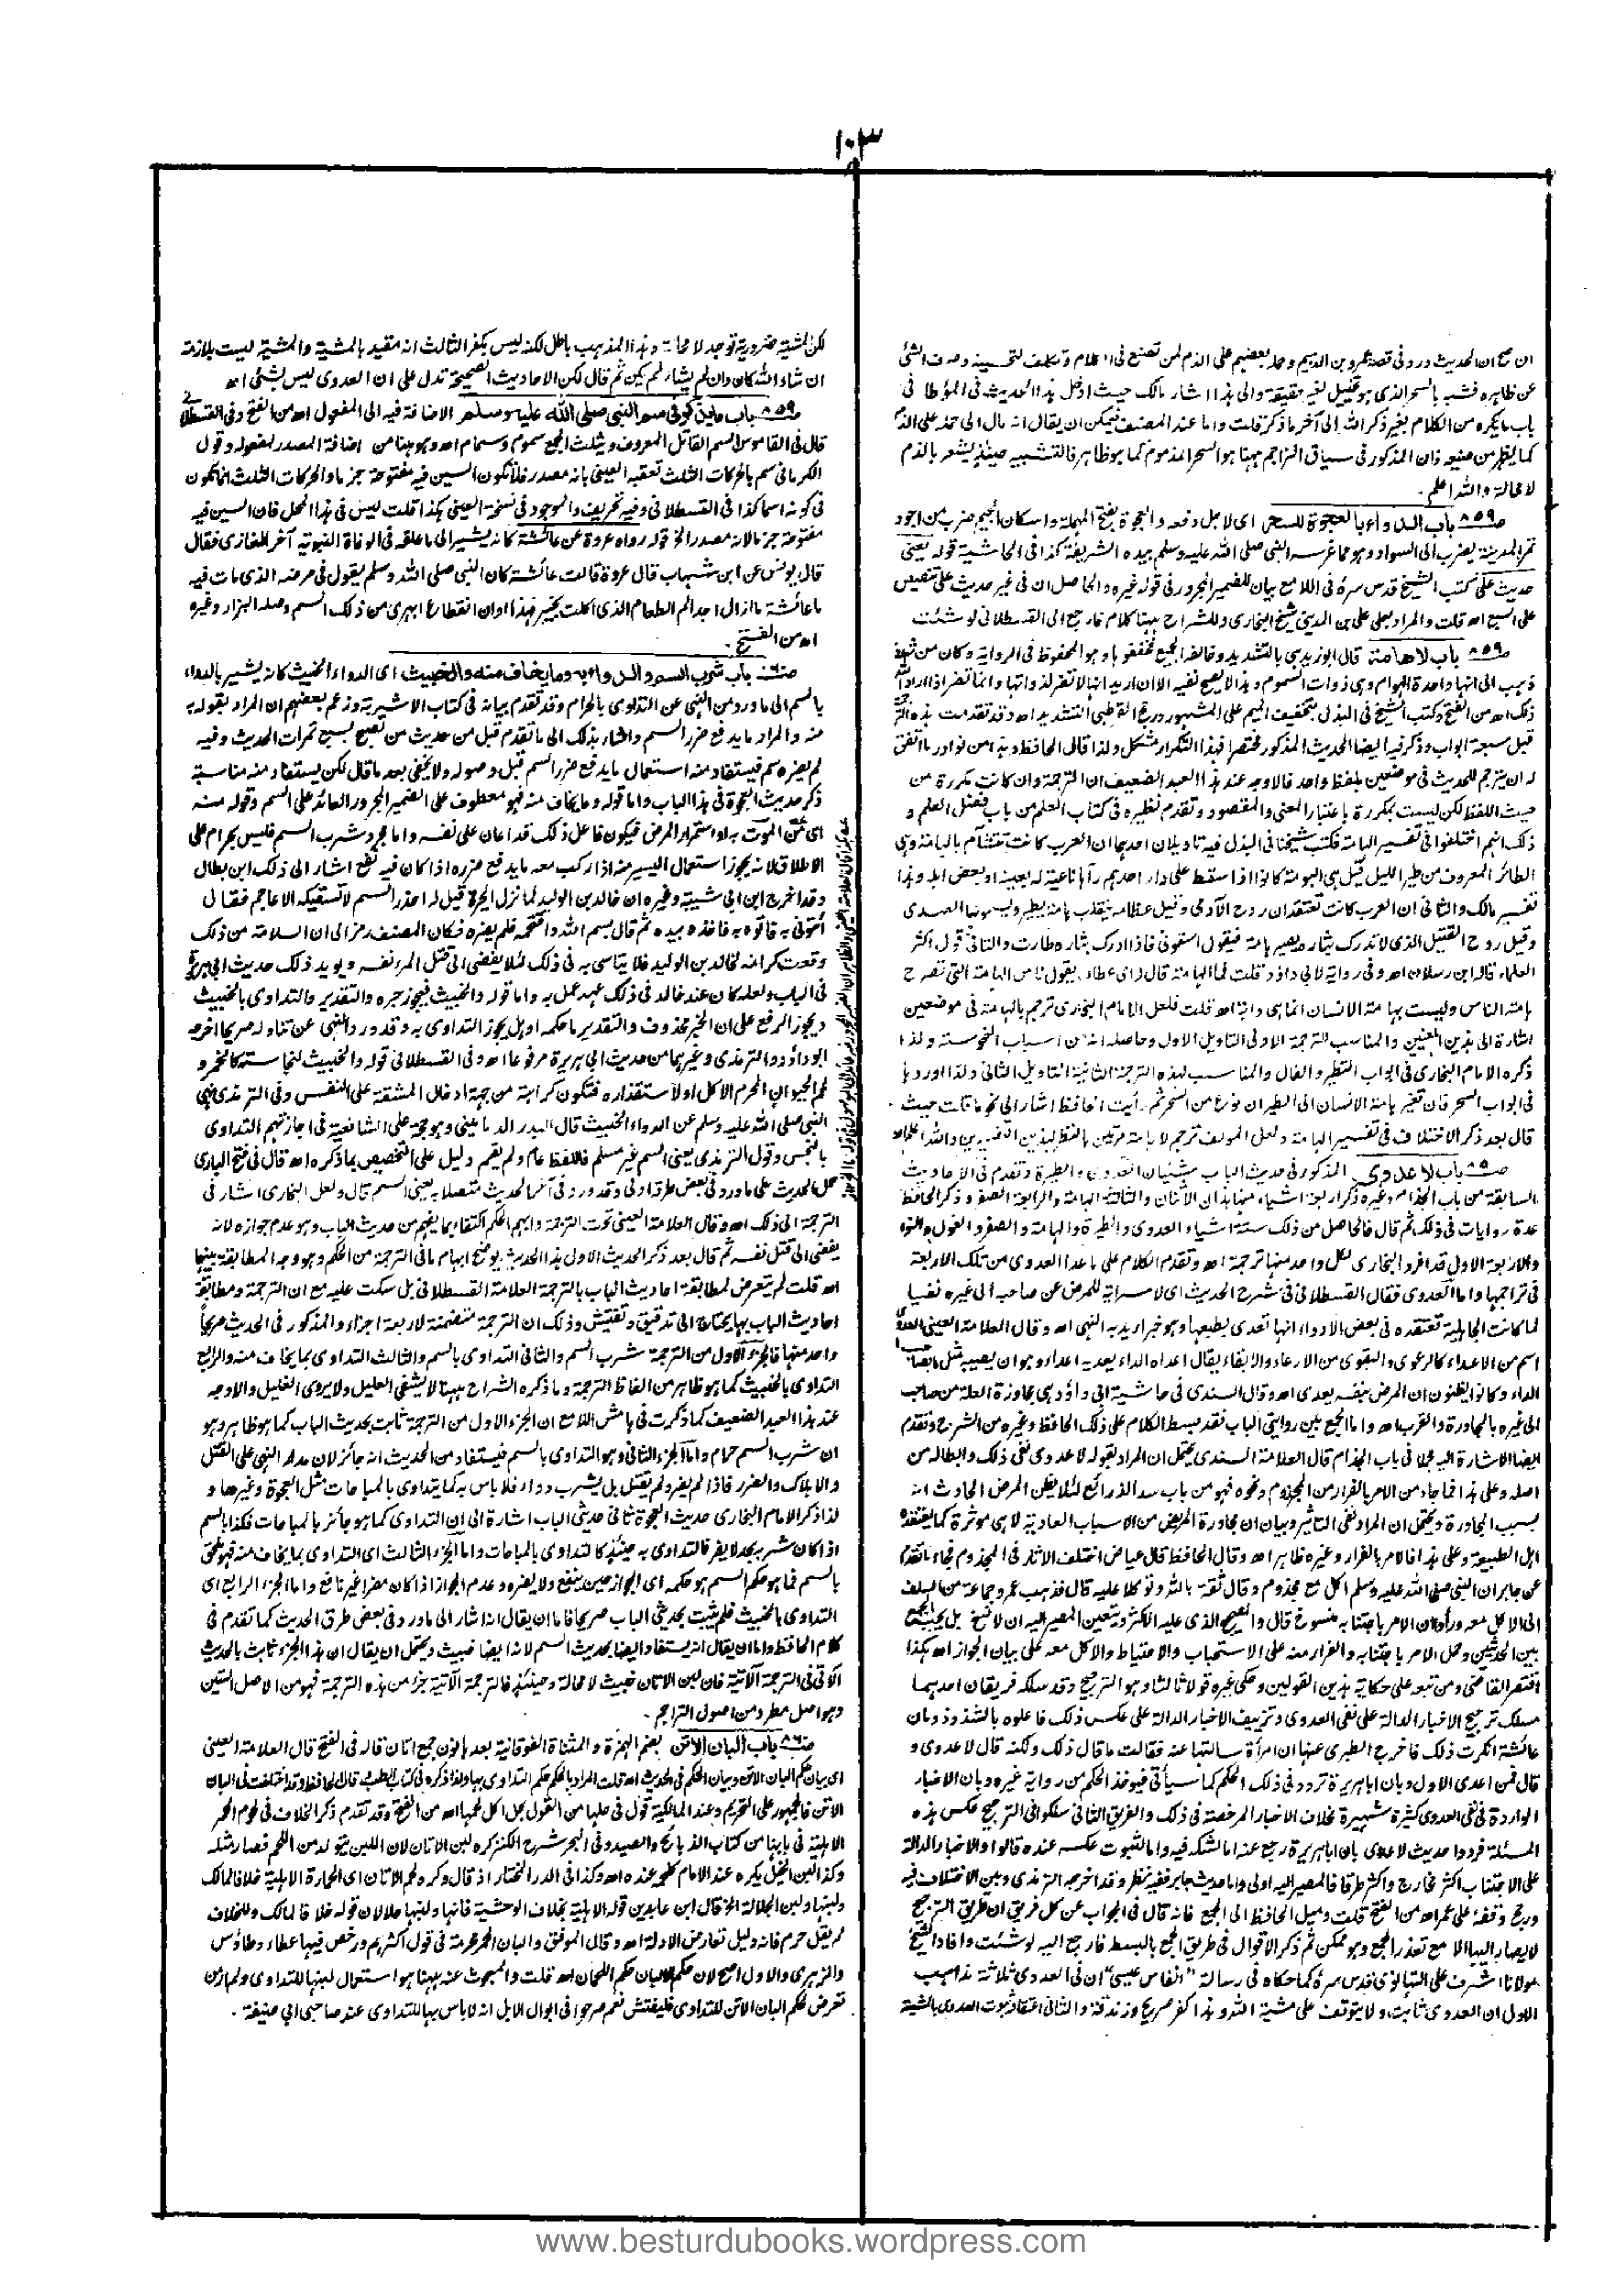 ١٠٣
ان صح ان الحديث ورد فى قصة عمرو بن الاهيم وحمله بعضهم على الذم لمن تصنع فى الكلام وتكلف لتحسينه وصرف الشئ
عن ظاهره فشبه بالسحر الذى هو تخييل لغير حقيقة والى هذا اشار مالك حيث ادخل هذا الحديث فى المؤطا فى
باب ما يكره من الكلام بغير ذكر الله الى آخر ما ذكر قلت واما عند المصنف فيمكن ان يقال انه مال الى حمله على الذم
كما يظهر من صنيعه فان المذكور فى سياق التراجم ههنا هو السحر المذموم كما هو ظاهر فالتشبيه حينئذ يشعر بالذم
لا محالة والله اعلم .
ص٨٥٩ باب الدواء بالعجوة للسحر اى لاجل دفعه والعجوة بفتح المهملة واسكان الجيم ضرب من اجود
تمر المدينة يضرب الى السواد وهو مما غرسه النبى صلى الله عليه وسلم بيده الشريفة كذا فى الحاشية قوله يعنى
حديث على كتب الشيخ قدس سره فى اللامع بيان للضمير المجرور فى قوله غيره والحاصل ان فى غير حديث على تنصيص
على السبع اه قلت والمراد بعلى على بن المدينى شيخ البخارى وللشراح ههنا كلام فارجع الى القسطلانى لو شئت
ص٨٥٩ باب لا هامة قال ابو زيد هى بالتشديد وخالفه الجميع فخففوها وهو المحفوظ فى الرواية وكان من شددها
ذهب الى انها واحدة الهوام وهى ذوات السموم وهذا لا يصح نفيه الا ان اريد انها لا تضر لذواتها وانما تضر اذا اراد الله
ذلك اه من الفتح وكتب الشيخ فى البذل بتخفيف الميم على المشهور ورجح القرطبى التشديد اه وقد تقدمت هذه الترجمة
قبل سبعة ابواب وذكر فيه ايضا الحديث المذكور مختصرا فهذا التكرار مشكل ولذا قال الحافظ وهذا من نوادر ما اتفق
له ان يترجم للحديث فى موضعين بلفظ واحد فالاوجه عند هذا العبد الضعيف ان الترجمة وان كانت مكررة من
حيث اللفظ لكن ليست بمكررة باعتبار المعنى والمقصود وتقدم نظيره فى كتاب العلم من باب فضل العلم و
ذلك انهم اختلفوا فى تفسير الهامة فكتب شيخنا فى البذل فيه تاويلان احدهما ان العرب كانت تتشأم بالهامة وهى
الطائر المعروف من طير الليل قيل هى البومة كانوا اذا سقط على دار احدهم رآها ناعية له بعينه او بعض اهله وهذا
تفسير مالك والثانى ان العرب كانت تعتقد ان روح الآدمى وقيل عظامه ينقلب هامة يطير ويسمونها الصدى
وقيل روح القتيل الذى لا تدرك بثاره يصير هامة فيقول اسقونى فاذا ادرك بثاره طارت والثانى قول اكثر
العلماء قاله ابن رسلان اه وفى رواية لابى داؤد قلت فما الهامة قال اى عطاء يقول ناس الهامة التى تصرخ
هامة الناس وليست بهامة الانسان انما هى دابة اه قلت فلعل الامام البخارى ترجم بالهامة فى موضعين
اشارة الى هذين المعنيين والمناسب للترجمة الاولى التاويل الاول وحاصله انه من اسباب النحوسة ولذا
ذكره الامام البخارى فى ابواب التطير والفال والمناسب لهذه الترجمة الثانية التاويل الثانى ولذا اوردها
فى ابواب السحر فان تغير هامة الانسان الى الطيران نوع من السحر ثم رأيت الحافظ اشار الى نحو ما قلت حيث
قال بعد ذكر الاختلاف فى تفسير الهامة ولعل المؤلف ترجم لا هامة مرتين بالنظر لهذين التفسيرين والله اعلم اه
ص٨٥٩ باب لا عدوى المذكور فى حديث الباب شيئان العدوى والطيرة وتقدم فى الاحاديث
السابقة من باب الجذام وغيره ذكر اربعة اشياء منها هذان الاثنان والثالثة الهامة والرابعة الصفر وذكر الحافظ
عدة روايات فى ذلك ثم قال فالحاصل من ذلك ستة اشياء العدوى والطيرة والهامة والصفر والغول والنوء
والاربعة الاول قد افرد البخارى لكل واحد منها ترجمة اه وتقدم الكلام على ما عدا العدوى من تلك الاربعة
فى تراجمها واما العدوى فقال القسطلانى فى شرح الحديث اى لا سراية للمرض عن صاحبه الى غيره نفيا
لما كانت الجاهلية تعتقده فى بعض الادواء انها تعدى بطبعها وهو خبر اريد به النهى اه وقال العلامة العينى العدوى
اسم من الاعداء كالرعوى والبقوى من الارعاء والابقاء يقال اعداه الداء يعديه اعداء وهو ان يصيبه مثل ما بصاحب
الداء وكانوا يظنون ان المرض بنفسه يعدى اه وقال السندى فى حاشية ابى داؤد هى مجاوزة العلة من صاحبه
الى غيره بالمجاورة والقرب اه واما الجمع بين روايتى الباب فقد بسط الكلام على ذلك الحافظ وغيره من الشرح وتقدم
ايضا الاشارة اليه مجملا فى باب الجذام قال العلامة السندى يحتمل ان المراد بقوله لا عدوى نفى ذلك وابطاله من
اصله وعلى هذا فما جاء من الامر بالفرار من المجذوم ونحوه فهو من باب سد الذرائع لئلا يظن المرض الحادث انه
بسبب المجاورة ويحتمل ان المراد نفى التاثير وبيان ان مجاورة المريض من الاسباب العادية لا هى موثرة كما يعتقده
اهل الطبيعة وعلى هذا فالامر بالفرار وغيره ظاهر اه وقال الحافظ قال عياض اختلف الآثار فى المجذوم فجاء ما تقدم
عن جابر ان النبى صلى الله عليه وسلم اكل مع مجذوم وقال ثقة بالله وتوكلا عليه قال فذهب عمر وجماعة من السلف
الى الاكل معه ورأوا ان الامر باجتنابه منسوخ قال والصحيح الذى عليه الاكثر ويتعين المصير اليه ان لا نسخ بل يجب الجمع
بين الحديثين وحمل الامر باجتنابه والفرار منه على الاستحباب والاحتياط والاكل معه على بيان الجواز اه هكذا
اقتصر القاضى ومن تبعه على حكاية هذين القولين وحكى غيره قولا ثالثا وهو الترجيح وقد سلكه فريقان احدهما
مسلك ترجيح الاخبار الدالة على نفى العدوى وتزييف الاخبار الدالة على عكس ذلك فاعلوه بالشذوذ وبان
عائشة انكرت ذلك فاخرج الطبرى عنها ان امرأة سالتها عنه فقالت ما قال ذلك ولكنه قال لا عدوى و
قال فمن اعدى الاول وبان ابا هريرة تردد فى ذلك الحكم كما سيأتى فيوخذ الحكم من رواية غيره وبان الاخبار
الواردة فى نفى العدوى كثيرة شهيرة بخلاف الاخبار المرخصة فى ذلك والفريق الثانى سلكوا فى الترجيح عكس هذه
المسئلة فردوا حديث لا عدوى بان ابا هريرة رجع عنه اما لشكه فيه واما لثبوت عكسه عنده قالوا والاخبار الدالة
على الاجتناب اكثر مخارج واكثر طرقا فالمصير اليه اولى واما حديث جابر ففيه نظر وقد اخرجه الترمذى وبين الاختلاف فيه
ورجح وقفه على عمر اه من الفتح قلت وميل الحافظ الى الجمع فانه قال فى الجواب عن كل فريق ان طريق الترجيح
لا يصار اليها الا مع تعذر الجمع وهو ممكن ثم ذكر الاقوال فى طريق الجمع بالبسط فارجع اليه لو شئت وافاد الشيخ
مولانا اشرف على التهانوى قدس سره كما حكاه فى رسالة "انفاس عيسى" ان فى العدوى ثلاثة مذاهب
الاول ان العدوى ثابت ولا يتوقف على مشية الله وهذا كفر صريح وزندقة والثانى اعتقاد ثبوت العدوى بالمشية
لكن المشية ضرورية توجد لا محالة وهذا المذهب باطل لكنه ليس بكفر الثالث انه مقيد بالمشية والمشية ليست بلازمة
ان شاء الله كان وان لم يشاء لم يكن ثم قال لكن الاحاديث الصحيحة تدل على ان العدوى ليس بشئ اه
ص٨٥٩ باب ما يذكر فى سم النبى صلى الله عليه وسلم الاضافة فيه الى المفعول اه من الفتح وفى القسطلانى
قال فى القاموس السم القاتل المعروف ويثلث الجمع سموم وسمام اه وهو ههنا من اضافة المصدر لمفعوله وقول
الكرمانى سم بالحركات الثلث تعقبه العينى بانه مصدر فلا تكون السين فيه مفتوحة جزما والحركات الثلث انما تكون
فى كونه اسما كذا فى القسطلانى وفيه تحريف والموجود فى نسخة العينى هكذا قلت ليس فى هذا المحل فان السين فيه
مفتوحة جزما لانه مصدر الخ قوله رواه عروة عن عائشة كانه يشير الى ما علقه فى الوفاة النبوية آخر المغازى فقال
قال يونس عن ابن شهاب قال عروة قالت عائشة كان النبى صلى الله عليه وسلم يقول فى مرضه الذى مات فيه
يا عائشة ما ازال اجد الم الطعام الذى اكلت بخيبر فهذا اوان انقطاع ابهرى من ذلك السم وصله البزار وغيره
اه من الفتح .
ص٨٦٠ باب شرب السم والدواء به وما يخاف منه والخبيث اى الدواء الخبيث كانه يشير بالدواء
بالسم الى ما ورد من النهى عن التداوى بالحرام وقد تقدم بيانه فى كتاب الاشربة وزعم بعضهم ان المراد بقوله به
منه والمراد ما يدفع ضرر السم واشار بذلك الى ما تقدم قبل من حديث من تصبح بسبع تمرات الحديث وفيه
لم يضره سم فيستفاد منه استعمال ما يدفع ضرر السم قبل وصوله ولا يخفى بعد ما قال لكن يستفاد منه مناسبة
ذكر حديث العجوة فى هذا الباب واما قوله وما يخاف منه فهو معطوف على الضمير المجرور العائد على السم وقوله منه
اى من الموت به او استمرار المرض فيكون فاعل ذلك قد اعان على نفسه واما مجرد شرب السم فليس بحرام على
الاطلاق لانه يجوز استعمال اليسير منه اذا ركب معه ما يدفع ضرره اذا كان فيه نفع اشار الى ذلك ابن بطال
وقد اخرج ابن ابى شيبة وغيره ان خالد بن الوليد لما نزل الحيرة قيل له احذر السم لا تسقيكه الاعاجم فقال
أتونى به فأتوه به فاخذه بيده ثم قال بسم الله واقتحمه فلم يضره فكان المصنف رمز الى ان السلامة من ذلك
وقعت كرامة لخالد بن الوليد فلا يتاسى به فى ذلك لئلا يفضى الى قتل المرء نفسه ويويد ذلك حديث ابى هريرة
فى الباب ولعله كان عند خالد فى ذلك عهد عمل به واما قوله والخبيث فيجوز جره والتقدير والتداوى بالخبيث
ويجوز الرفع على ان الخبر محذوف والتقدير ما حكمه او هل يجوز التداوى به وقد ورد النهى عن تناوله صريحا اخرجه
ابو داؤد والترمذى وغيرهما من حديث ابى هريرة مرفوعا اه وفى القسطلانى قوله والخبيث لنجاسته كالخمر و
لحم الحيوان المحرم الاكل او لاستقذاره فتكون كراهته من جهة ادخال المشقة على النفس وفى الترمذى نهى
النبى صلى الله عليه وسلم عن الدواء الخبيث قال البدر الدمامينى وهو حجة على الشافعية فى اجازتهم التداوى
بالنجس وقول الترمذى يعنى السم غير مسلم فاللفظ عام ولم يقم دليل على التخصيص بما ذكره اه قال فى فتح البارى
حمل الحديث على ما ورد فى بعض طرقه اولى وقد ورد فى آخر الحديث متصلا به يعنى السم قال ولعل البخارى اشار فى
الترجمة الى ذلك اه وقال العلامة العينى تحت الترجمة وابهم الحكم اكتفاء بما يفهم من حديث الباب وهو عدم جوازه لانه
يفضى الى قتل نفسه ثم قال بعد ذكر الحديث الاول هذا الحديث يوضح ابهام ما فى الترجمة من الحكم وهو وجه المطابقة بينهما
اه قلت لم يتعرض لمطابقة احاديث الباب بالترجمة العلامة القسطلانى بل سكت عليه مع ان الترجمة ومطابقة
احاديث الباب بها يحتاج الى تدقيق وتفتيش وذلك ان الترجمة متضمنة لاربعة اجزاء والمذكور فى الحديث صريحاً
واحد منها فالجزء الاول من الترجمة شرب السم والثانى التداوى بالسم والثالث التداوى بما يخاف منه والرابع
التداوى بالخبيث كما هو ظاهر من الفاظ الترجمة وما ذكره الشراح ههنا لا يشفى العليل ولا يروى الغليل والاوجه
عند هذا العبد الضعيف كما ذكرت فى هامش اللامع ان الجزء الاول من الترجمة ثابت بحديث الباب كما هو ظاهر وهو
ان شرب السم حرام واما الجزء الثانى وهو التداوى بالسم فيستفاد من الحديث انه جائز لان مدار النهى على القتل
والاهلاك والضرر فاذا لم يضر ولم يقتل بل يشرب دواء فلا باس به كما يتداوى بالمباحات مثل العجوة وغيرها و
لذا ذكر الامام البخارى حديث العجوة ثانى حديثى الباب اشارة الى ان التداوى كما هو جائز بالمباحات فكذا بالسم
اذا كان شربه بحد لا يضر فالتداوى به حينئذ كالتداوى بالمباحات واما الجزء الثالث اى التداوى بما يخاف منه فهو ملحق
بالسم فما هو حكم السم هو حكمه اى الجواز حين ينفع ولا يضره وعدم الجواز اذا كان مضرا غير نافع واما الجزء الرابع اى
التداوى بالخبيث فلم يثبت بحديثى الباب صريحا فاما ان يقال انه اشار الى ما ورد فى بعض طرق الحديث كما تقدم فى
كلام الحافظ واما ان يقال انه يستفاد ايضا بحديث السم لانه ايضا خبيث ويحتمل ان يقال ان هذا الجزء ثابت بالحديث
الآتى فى الترجمة الآتية فان لبن الاتان خبيث لا محالة وحينئذ فالترجمة الآتية جزء من هذه الترجمة فهو من الاصل الستين
وهو اصل مطرد من اصول التراجم .
ص٨٦٠ باب البان الاتن بضم الهمزة والمثناة الفوقانية بعدها نون جمع اتان قاله فى الفتح قال العلامة العينى
اى بيان حكم البان الاتن وبيان الحكم فى الحديث اه قلت المراد بالحكم حكم التداوى بها ولذا ذكره فى كتاب الطب قال الحافظ وقد اختلف فى البان
الاتن فالجمهور على التحريم وعند المالكية قول فى حلها من القول بحل اكل لحمها اه من الفتح وقد تقدم ذكر الخلاف فى لحوم الحمر
الاهلية فى بابها من كتاب الذبائح والصيد وفى البحر شرح الكنز كره لبن الاتان لان اللبن يتولد من اللحم فصار مثله
وكذا لبن الخيل يكره عند الامام كلحمه عنده اه وكذا فى الدر المختار اذ قال وكره لحم الاتان اى الحمارة الاهلية خلافا لمالك
ولبنها ولبن الجلالة الخ قال ابن عابدين قوله الاهلية بخلاف الوحشية فانها ولبنها حلالان قوله خلافا لمالك وللخلاف
لم يقل حرم فانه دليل تعارض الادلة اه وقال الموفق والبان الحمر محرمة فى قول اكثرهم ورخص فيها عطاء وطاؤس
والزهرى والاول اصح لان حكم الالبان حكم اللحمان اه قلت والمبحوث عنه ههنا هو استعمال لبنها للتداوى ولم ار من
تعرض لحكم البان الاتن للتداوى فليفتش نعم صرحوا فى ابوال الابل انه لا باس بها للتداوى عند صاحبى ابى حنيفة .
www.besturdubooks.wordpress.com